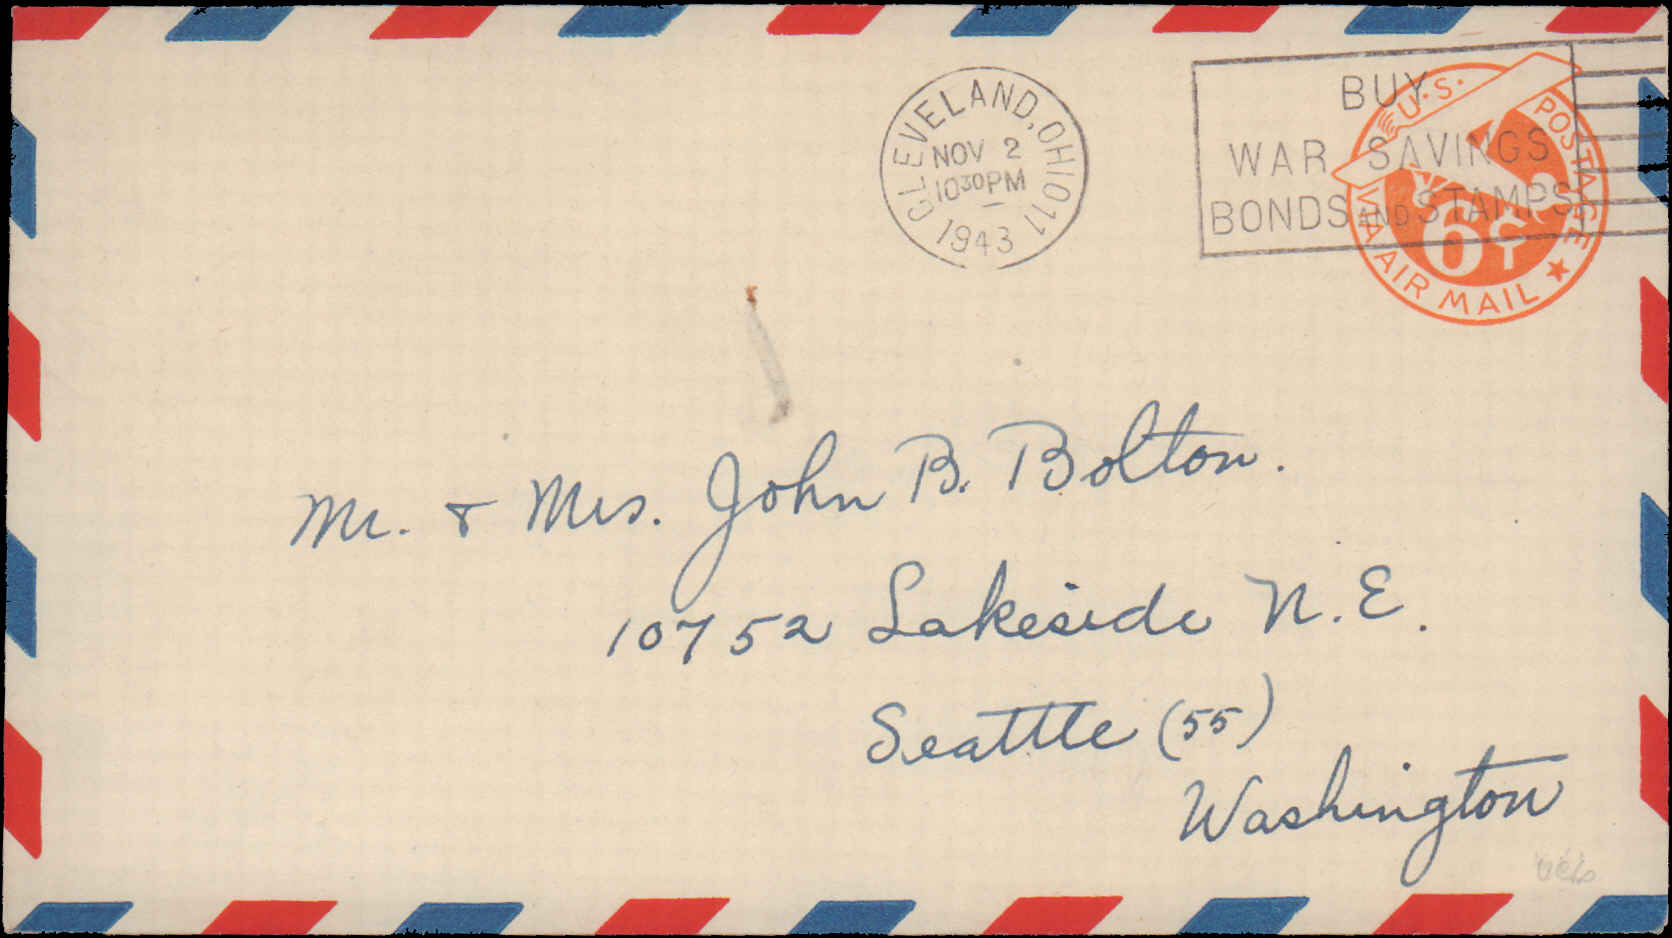 CLEVELAND, OHIO 11
NOV 2
10 30 PM
1943
BUY
WAR SAVINGS
BONDS AND STAMPS
U.S. POSTAGE
6¢
VIA AIR MAIL
Mr. & Mrs. John B. Bolton.
10752 Lakeside N.E.
Seattle (55)
Washington